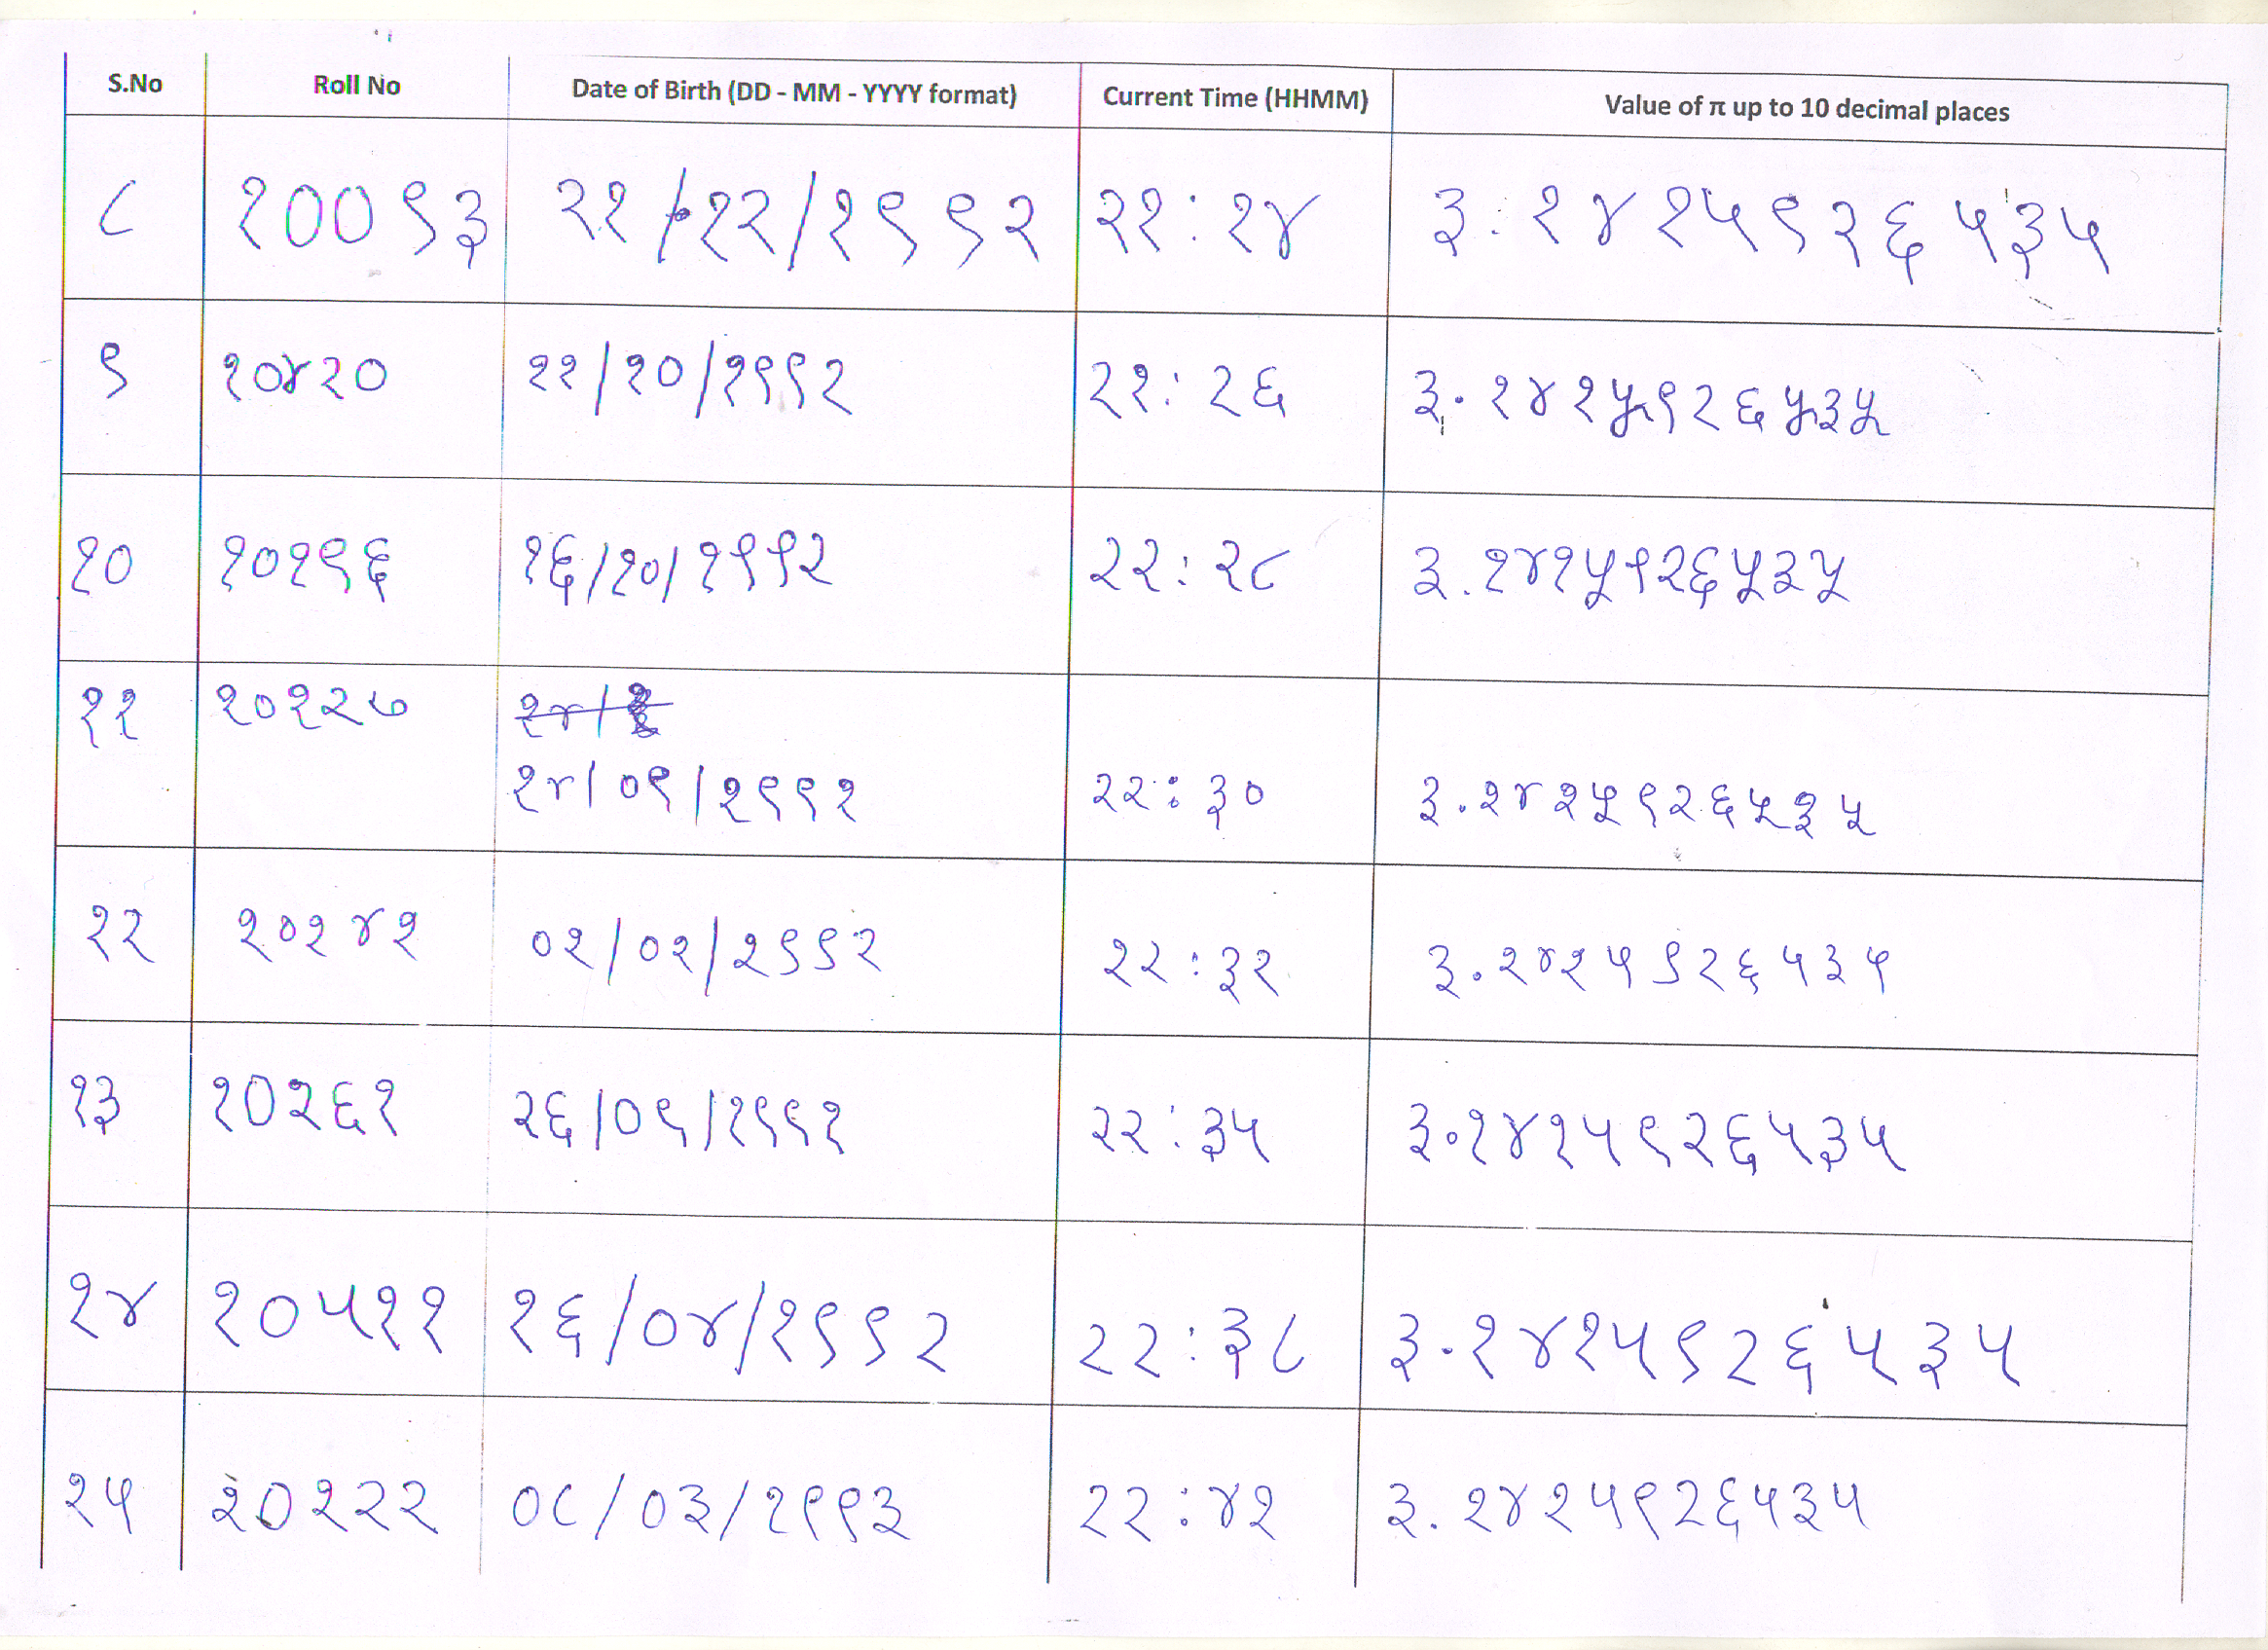 S.No Roll No Date of Birth (DD - MM - YYYY format) Current Time (HHMM) Value of π up to 10 decimal places
८ १००९३ २१/१२/१९९२ २२:२४ ३.१४१५९२६५३५
९ १०४२० ११/१०/१९९२ २२:२६ ३.१४१५९२६५३५
१० १०१९६ १६/१०/१९९२ २२:२८ ३.१४१५९२६५३५
११ १०१२७
१४/०९/१९९१ २२:३० ३.१४१५९२६५३५
१२ १०१४१ ०२/०१/१९९२ २२:३२ ३.१४१५९२६५३५
१३ १०२६१ २६/०९/१९९१ २२:३५ ३.१४१५९२६५३५
१४ १०५११ १६/०४/१९९२ २२:३८ ३.१४१५९२६५३५
१५ १०१२२ ०८/०३/१९९३ २२:४१ ३.१४१५९२६५३५